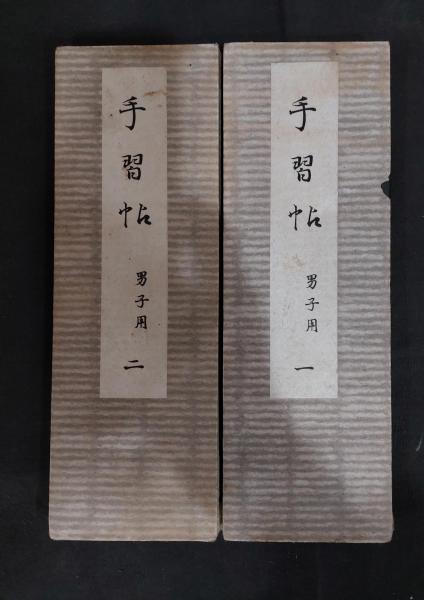 手習帖
男子用
一
手習帖
男子用
二